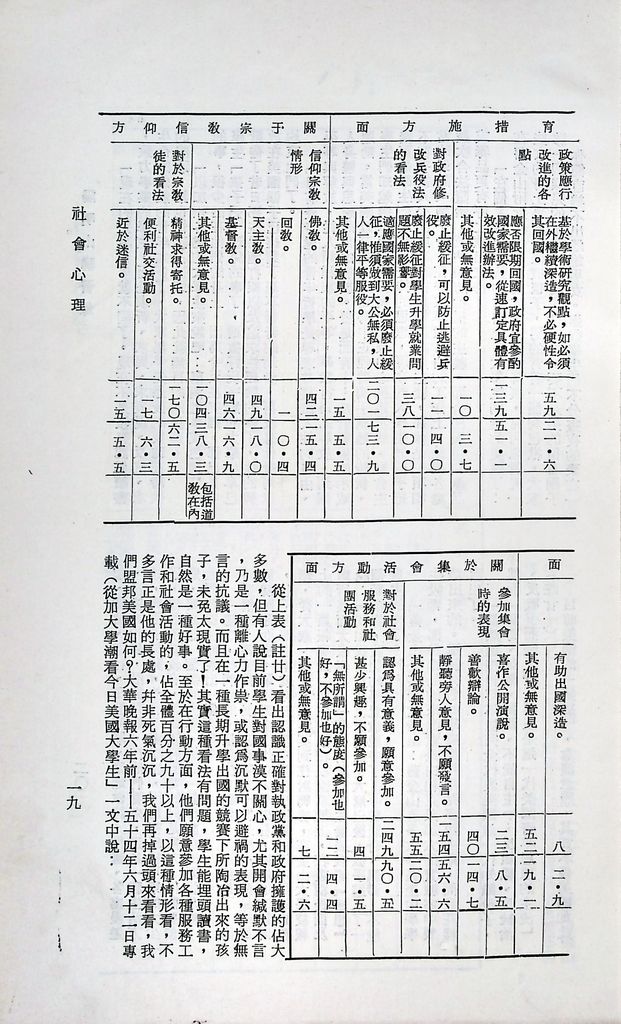 育措施方面
政策應行
改進的各
點
基於學術研究觀點，如必須
在外繼續深造，不必硬性令
其回國。
五九
二一・六
應否限期回國，政府宜參酌
國家需要，從速訂定具體有
效改進辦法。
一三九
五一・一
其他或無意見。
一〇
三・七
對政府修
改兵役法
的看法
廢止緩征，可以防止逃避兵
役。
一一
四・〇
廢止緩征對學生升學就業問
題不無影響。
三八
一〇・〇
適應國家需要，必須廢止緩
征，惟須做到大公無私，人
人一律平等服役。
二〇一
七三・九
其他或無意見。
一五
五・五
關于宗教信仰方
信仰宗教
情形
佛教。
四二
一五・四
回教。
一
〇・四
天主教。
四九
一八・〇
基督教。
四六
一六・九
其他或無意見。
一〇四
三八・三
包括道
教在內
對於宗教
徒的看法
精神求得寄托。
一七〇
六二・五
便利社交活動。
一七
六・三
近於迷信。
一五
五・五
面
有助出國深造。
八
二・九
其他或無意見。
五二
一九・一
關於集會活動方面
參加集會
時的表現
喜作公開演說。
二三
八・五
善歡辯論。
四〇
一四・七
靜聽旁人意見，不願發言。
一五四
五六・六
其他或無意見。
五五
二〇・二
對於社會
服務和社
團活動
認爲具有意義，願意參加。
二四九
九〇・五
甚少興趣，不願參加。
四
一・五
「無所謂」的態度（參加也
好，不參加也好）。
一二
四・四
其他或無意見。
七
二・六
從上表（註廿）看出認識正確對執政黨和政府擁護的佔大
多數，但有人說目前學生對國事漠不關心，尤其開會緘默不言
，乃是一種離心力作祟，或認爲沉默可以避禍的表現，等於無
言的抗議。而且在一種長期升學出國的競賽下所陶冶出來的孩
子，未免太現實了！其實這種看法有問題，學生能埋頭讀書，
自然是一種好事。至於在行動方面，他們願意參加各種服務工
作和社會活動的，佔全體百分之九十以上，以這種情形看，不
多言正是他的長處，幷非死氣沉沉，我們再掉過頭來看看，我
們盟邦美國如何？大華晚報六年前——五十四年六月十二日專
載（從加大學潮看今日美國大學生」一文中說：
社會心理
一九